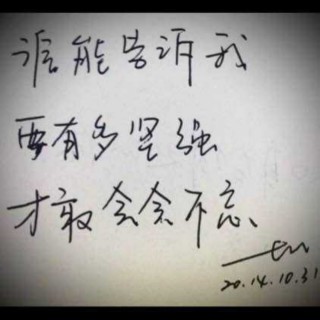 谁能告诉我
要有多坚强
才敢念念不忘、
20.14.10.31